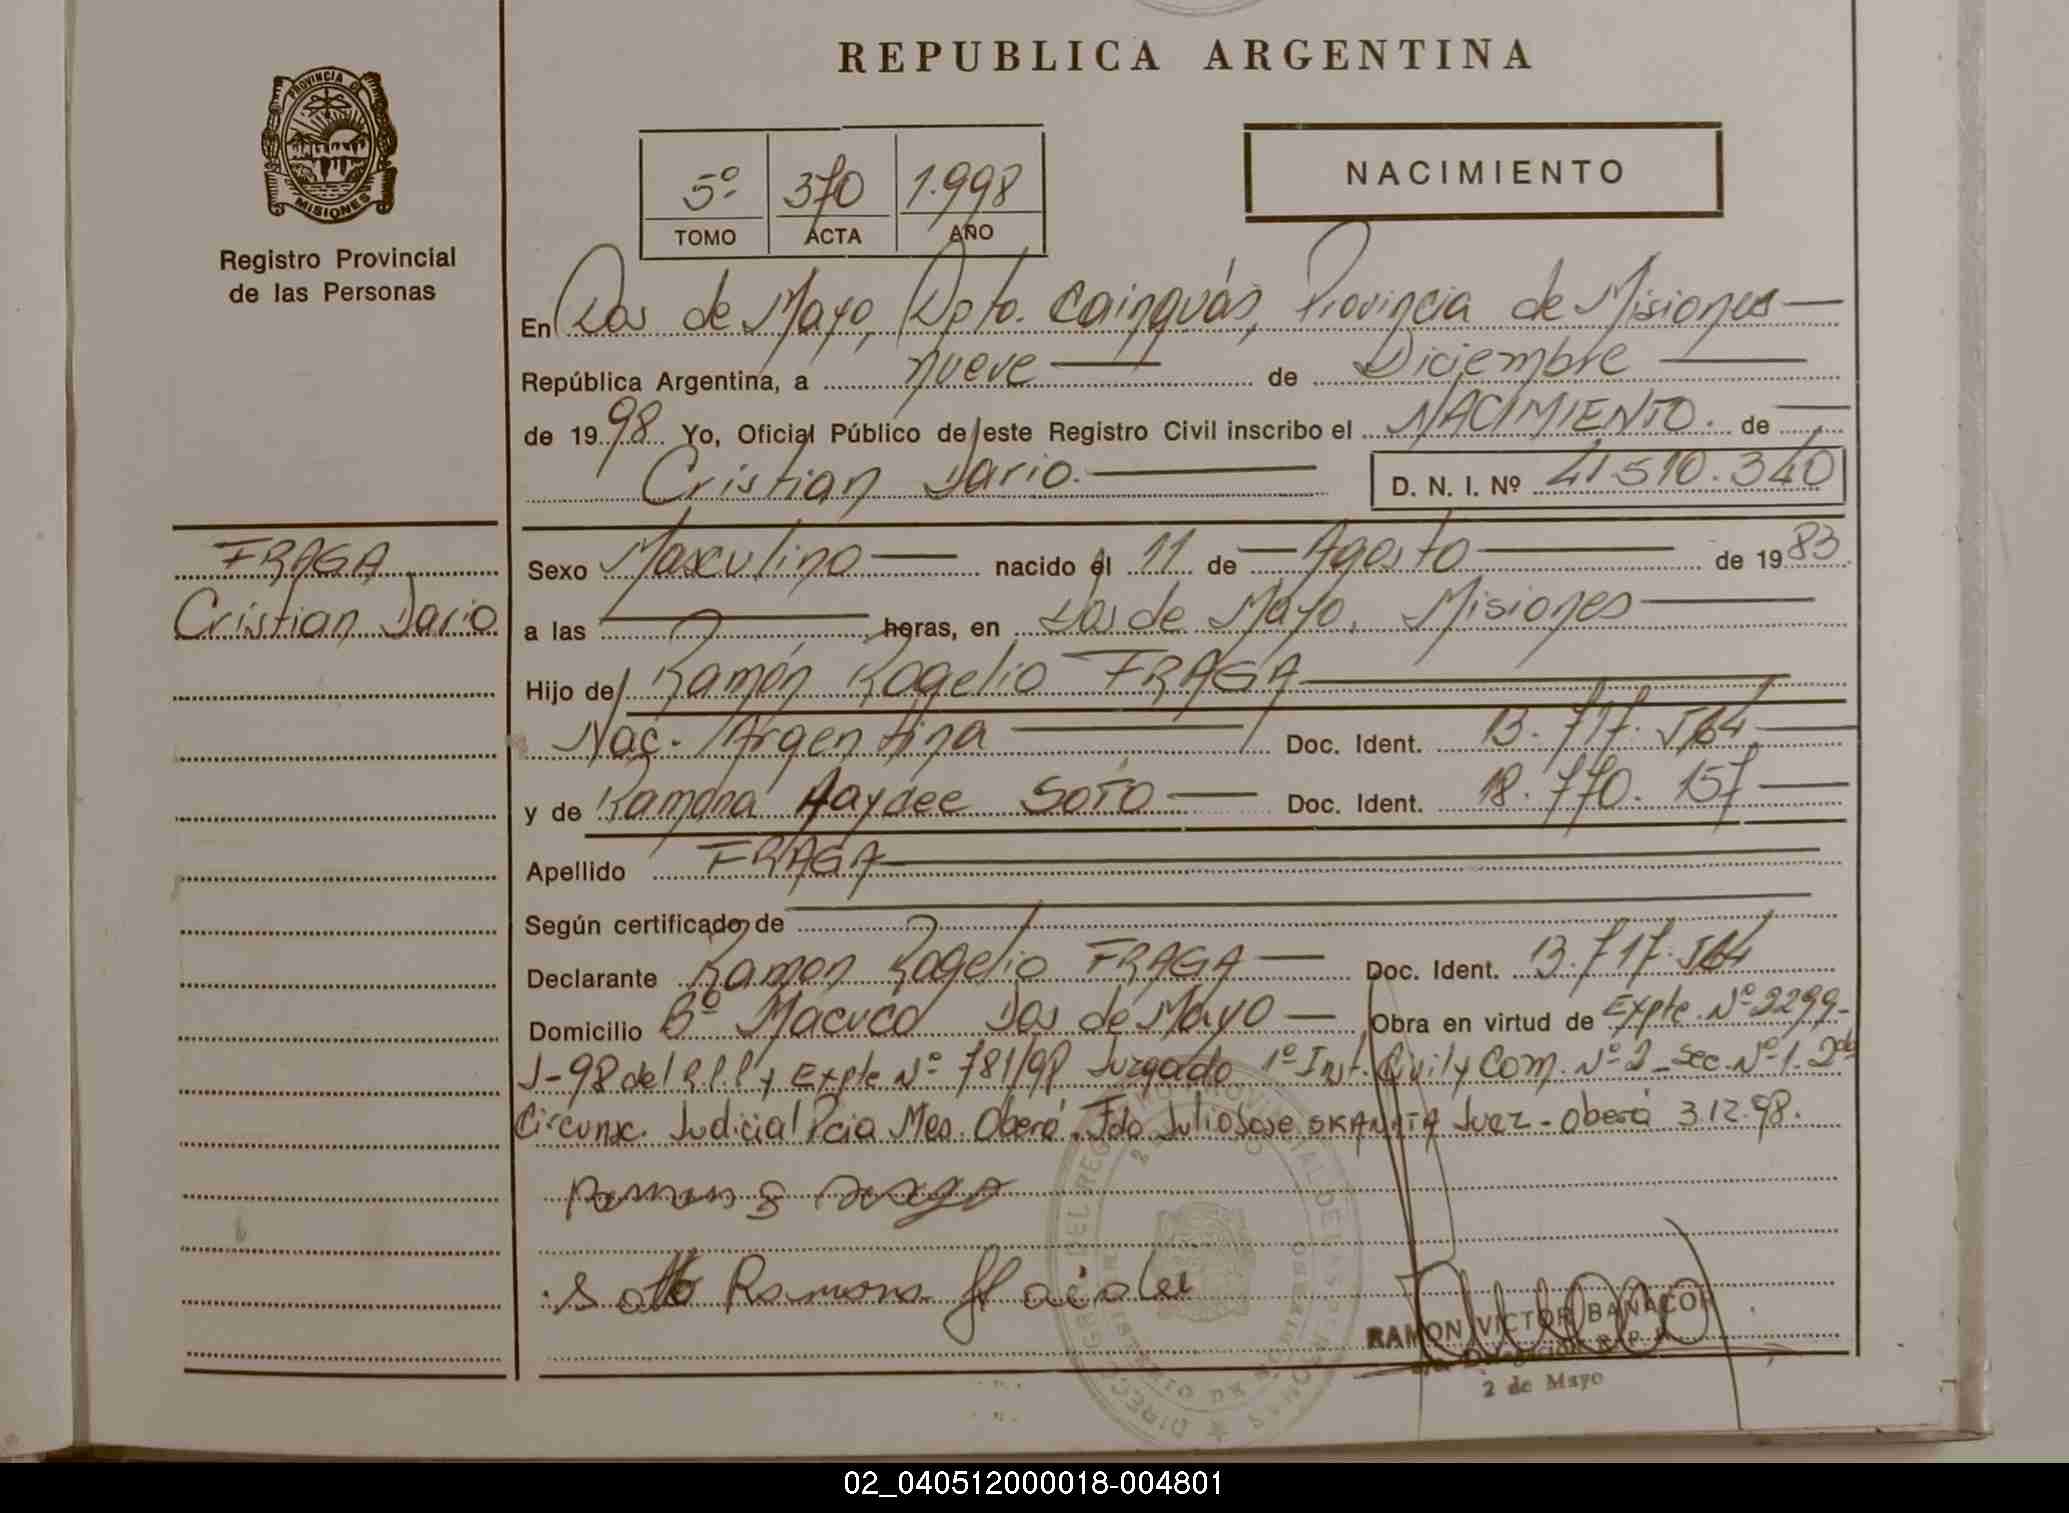 REPUBLICA ARGENTINA
PROVINCIA DE
MISIONES
Registro Provincial
de las Personas
5º 370 1.998
TOMO ACTA AÑO
NACIMIENTO
En Dos de Mayo, Dpto. Cainguás, Provincia de Misiones
República Argentina, a nueve de Diciembre
de 1998 Yo, Oficial Público de este Registro Civil inscribo el NACIMIENTO. de
Cristian Dario. D. N. I. Nº 41.510.340
FRAGA
Cristian Dario
Sexo Masculino nacido el 11 de Agosto de 1983
a las horas, en Dos de Mayo, Misiones
Hijo de Ramón Rogelio FRAGA
Nac. Argentina Doc. Ident. 13.717.
y de Ramona Haydee SOTO Doc. Ident. 18.770.157
Apellido FRAGA
Según certificado de
Declarante Ramon Rogelio FRAGA Doc. Ident. 13.717.
Domicilio Bº Macuco Dos de Mayo Obra en virtud de Expte. Nº 2299-
J-98 del R.P.P y Expte Nº 781/98 Juzgado 1º Inst. Civil y Com. Nº 2 - Sec. Nº 1. 2da
Circunsc. Judicial Pcia Mes. Oberá. Fdo Julio Jose Juez - Oberá 3.12.98.
Soto Ramona
RAMON VICTOR BANACOR
2 de Mayo
02_040512000018-004801